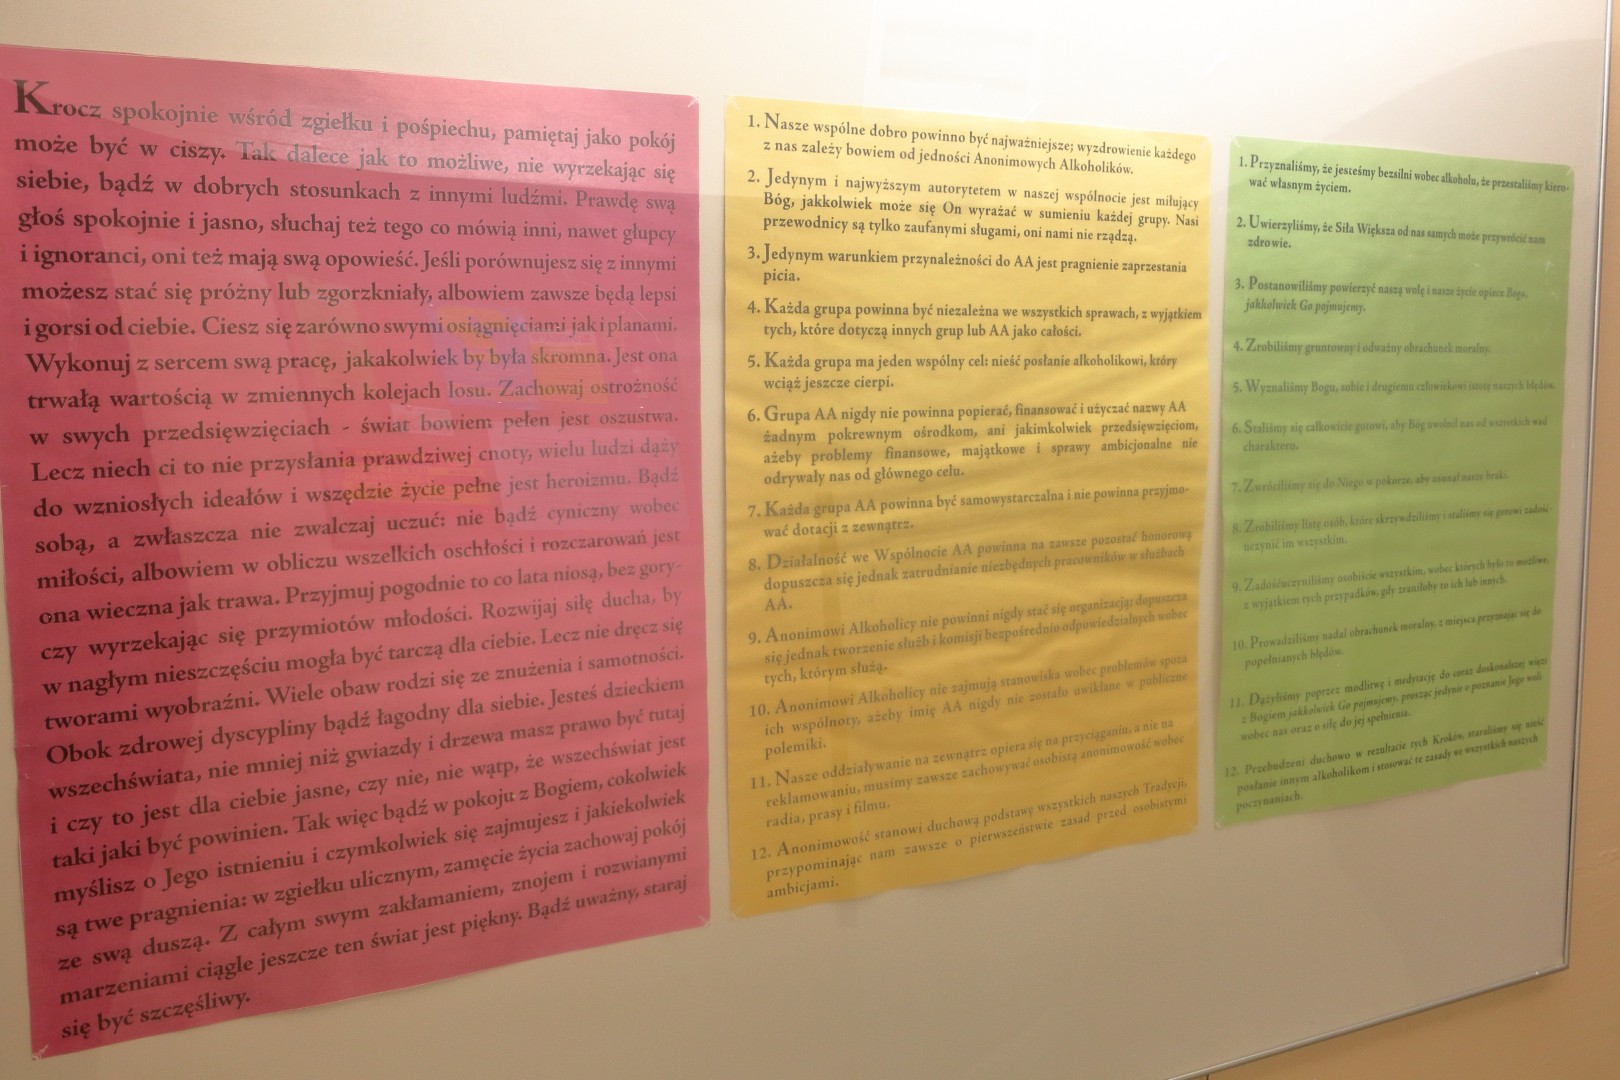 Krocz spokojnie wśród zgiełku i pośpiechu, pamiętaj jako pokój
może być w ciszy. Tak dalece jak to możliwe, nie wyrzekając się
siebie, bądź w dobrych stosunkach z innymi ludźmi. Prawdę swą
głoś spokojnie i jasno, słuchaj też tego co mówią inni, nawet głupcy
i ignoranci, oni też mają swą opowieść. Jeśli porównujesz się z innymi
możesz stać się próżny lub zgorzkniały, albowiem zawsze będą lepsi
i gorsi od ciebie. Ciesz się zarówno swymi osiągnięciami jak i planami.
Wykonuj z sercem swą pracę, jakakolwiek by była skromna. Jest ona
trwałą wartością w zmiennych kolejach losu. Zachowaj ostrożność
w swych przedsięwzięciach - świat bowiem pełen jest oszustwa.
Lecz niech ci to nie przysłania prawdziwej cnoty, wielu ludzi dąży
do wzniosłych ideałów i wszędzie życie pełne jest heroizmu. Bądź
sobą, a zwłaszcza nie zwalczaj uczuć: nie bądź cyniczny wobec
miłości, albowiem w obliczu wszelkich oschłości i rozczarowań jest
ona wieczna jak trawa. Przyjmuj pogodnie to co lata niosą, bez gory-
czy wyrzekając się przymiotów młodości. Rozwijaj siłę ducha, by
w nagłym nieszczęściu mogła być tarczą dla ciebie. Lecz nie dręcz się
tworami wyobraźni. Wiele obaw rodzi się ze znużenia i samotności.
Obok zdrowej dyscypliny bądź łagodny dla siebie. Jesteś dzieckiem
wszechświata, nie mniej niż gwiazdy i drzewa masz prawo być tutaj
i czy to jest dla ciebie jasne, czy nie, nie wątp, że wszechświat jest
taki jaki być powinien. Tak więc bądź w pokoju z Bogiem, cokolwiek
myślisz o Jego istnieniu i czymkolwiek się zajmujesz i jakiekolwiek
są twe pragnienia: w zgiełku ulicznym, zamęcie życia zachowaj pokój
ze swą duszą. Z całym swym zakłamaniem, znojem i rozwianymi
marzeniami ciągle jeszcze ten świat jest piękny. Bądź uważny, staraj
się być szczęśliwy.
1. Nasze wspólne dobro powinno być najważniejsze; wyzdrowienie każdego
z nas zależy bowiem od jedności Anonimowych Alkoholików.
2. Jedynym i najwyższym autorytetem w naszej wspólnocie jest miłujący
Bóg, jakkolwiek może się On wyrażać w sumieniu każdej grupy. Nasi
przewodnicy są tylko zaufanymi sługami, oni nami nie rządzą.
3. Jedynym warunkiem przynależności do AA jest pragnienie zaprzestania
picia.
4. Każda grupa powinna być niezależna we wszystkich sprawach, z wyjątkiem
tych, które dotyczą innych grup lub AA jako całości.
5. Każda grupa ma jeden wspólny cel: nieść posłanie alkoholikowi, który
wciąż jeszcze cierpi.
6. Grupa AA nigdy nie powinna popierać, finansować i użyczać nazwy AA
żadnym pokrewnym ośrodkom, ani jakimkolwiek przedsięwzięciom,
ażeby problemy finansowe, majątkowe i sprawy ambicjonalne nie
odrywały nas od głównego celu.
7. Każda grupa AA powinna być samowystarczalna i nie powinna przyjmo-
wać dotacji z zewnątrz.
8. Działalność we Wspólnocie AA powinna na zawsze pozostać honorową
dopuszcza się jednak zatrudnianie niezbędnych pracowników w służbach
AA.
9. Anonimowi Alkoholicy nie powinni nigdy stać się organizacją; dopuszcza
się jednak tworzenie służb i komisji bezpośrednio odpowiedzialnych wobec
tych, którym służą.
10. Anonimowi Alkoholicy nie zajmują stanowiska wobec problemów spoza
ich wspólnoty, ażeby imię AA nigdy nie zostało uwikłane w publiczne
polemiki.
11. Nasze oddziaływanie na zewnątrz opiera się na przyciąganiu, a nie na
reklamowaniu, musimy zawsze zachowywać osobistą anonimowość wobec
radia, prasy i filmu.
12. Anonimowość stanowi duchową podstawę wszystkich naszych Tradycji,
przypominając nam zawsze o pierwszeństwie zasad przed osobistymi
ambicjami.
1. Przyznaliśmy, że jesteśmy bezsilni wobec alkoholu, że przestaliśmy kiero-
wać własnym życiem.
2. Uwierzyliśmy, że Siła Większa od nas samych może przywrócić nam
zdrowie.
3. Postanowiliśmy powierzyć naszą wolę i nasze życie opiece Boga,
jakkolwiek Go pojmujemy.
4. Zrobiliśmy gruntowny i odważny obrachunek moralny.
5. Wyznaliśmy Bogu, sobie i drugiemu człowiekowi istotę naszych błędów.
6. Staliśmy się całkowicie gotowi, aby Bóg uwolnił nas od wszystkich wad
charakteru.
7. Zwróciliśmy się do Niego w pokorze, aby usunął nasze braki.
8. Zrobiliśmy listę osób, które skrzywdziliśmy i staliśmy się gotowi zadość-
uczynić im wszystkim.
9. Zadośćuczyniliśmy osobiście wszystkim, wobec których było to możliwe,
z wyjątkiem tych przypadków, gdy zraniłoby to ich lub innych.
10. Prowadziliśmy nadal obrachunek moralny, z miejsca przyznając się do
popełnianych błędów.
11. Dążyliśmy poprzez modlitwę i medytację do coraz doskonalszej więzi
z Bogiem jakkolwiek Go pojmujemy, prosząc jedynie o poznanie Jego woli
wobec nas oraz o siłę do jej spełnienia.
12. Przebudzeni duchowo w rezultacie tych Kroków, staraliśmy się nieść
posłanie innym alkoholikom i stosować te zasady we wszystkich naszych
poczynaniach.